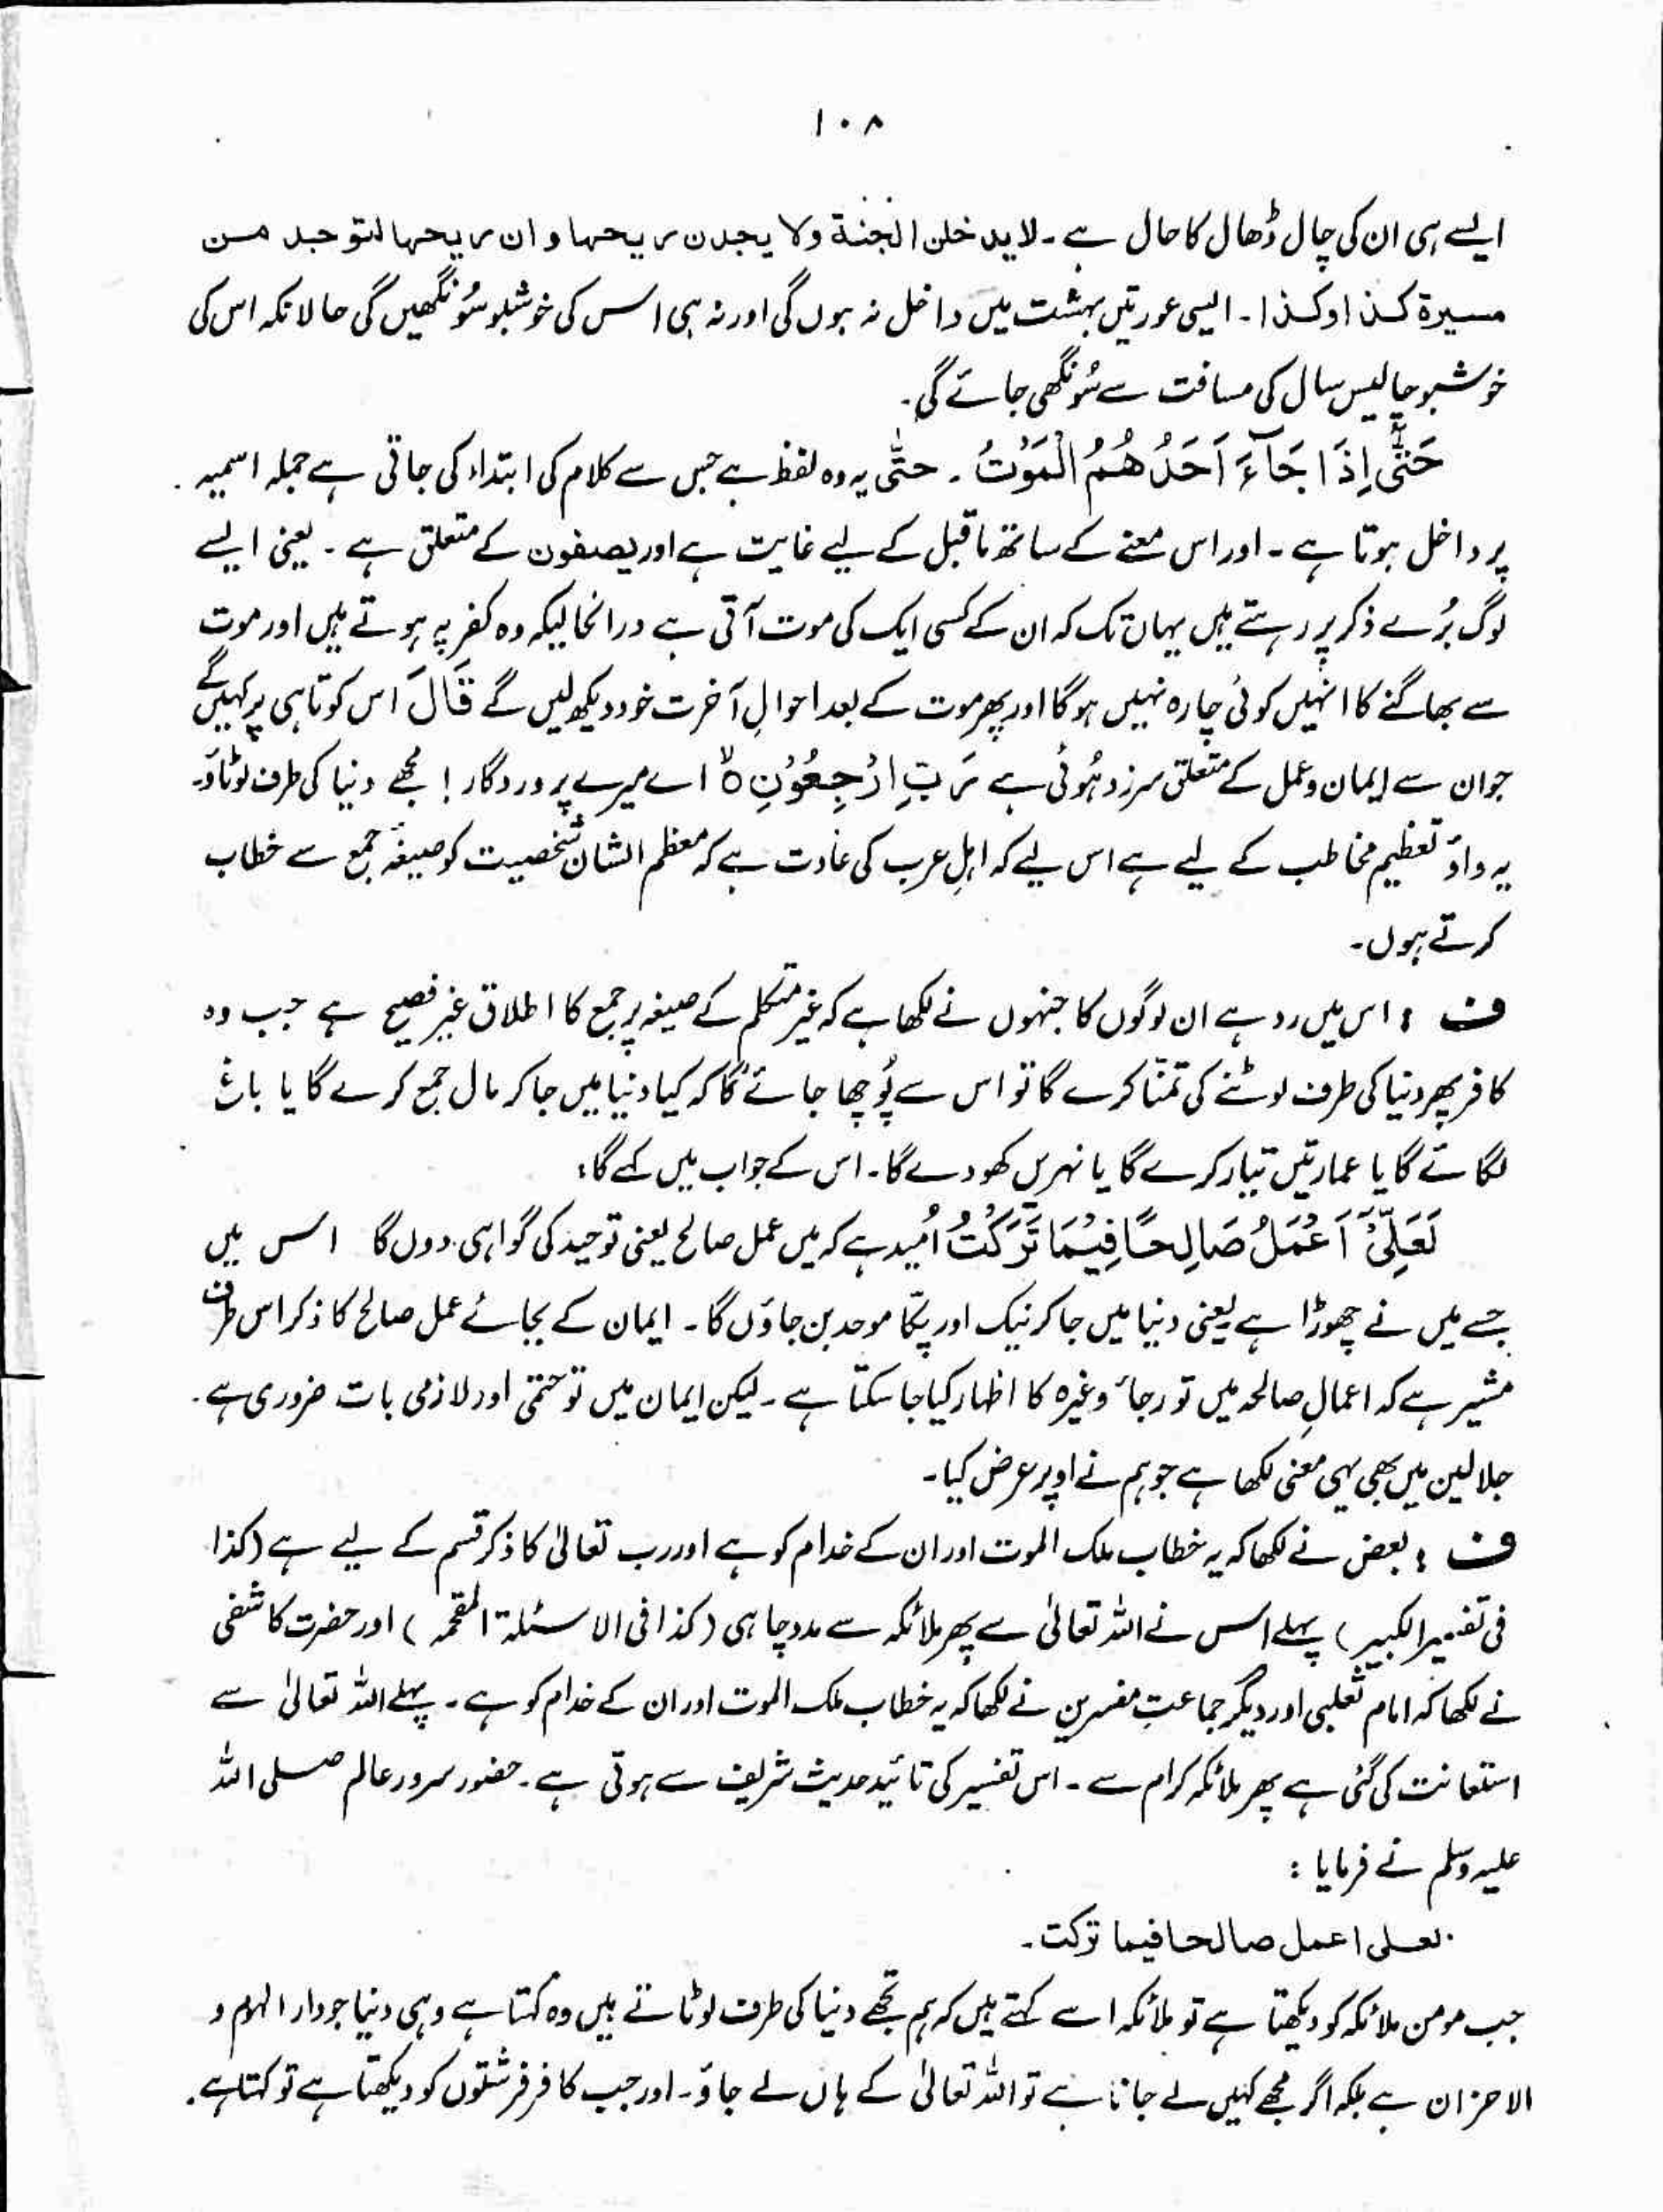 ۱۰۸
ایسے ہی ان کی چال ڈھال کا حال ہے۔ لا یدخلن الجنۃ ولا یجدن ریحہا و ان ریحہا لتوجد من
مسیرۃ کذا وکذا۔ ایسی عورتیں بہشت میں داخل نہ ہوں گی اور نہ ہی اس کی خوشبو سُونگھیں گی حالانکہ اس کی
خوشبو چالیس سال کی مسافت سے سُونگھی جائے گی۔
حَتّٰۤی اِذَا جَآءَ اَحَدَھُمُ الْمَوْتُ ۔ حتّٰی یہ وہ لفظ ہے جس سے کلام کی ابتداء کی جاتی ہے جملہ اسمیہ
پر داخل ہوتا ہے۔ اور اس معنے کے ساتھ ماقبل کے لیے غایت ہے اور یصفون کے متعلق ہے ۔ یعنی ایسے
لوگ بُرے ذکر پر رہتے ہیں یہاں تک کہ ان کے کسی ایک کی موت آتی ہے درانحالیکہ وہ کفر پہ ہوتے ہیں اور موت
سے بھاگنے کا انہیں کوئی چارہ نہیں ہوگا اور پھر موت کے بعد احوالِ آخرت خود دیکھ لیں گے قَالَ اس کوتاہی پر کہیں گے
جو ان سے ایمان و عمل کے متعلق سرزد ہُوئی ہے رَبِّ ارْجِعُوْنِ ہ لا اے میرے پروردگار ! مجھے دنیا کی طرف لوٹاؤ۔
یہ واؤ تعظیم مخاطب کے لیے ہے اس لیے کہ اہلِ عرب کی عادت ہے کہ معظم الشان شخصیت کو صیغۂ جمع سے خطاب
کرتے ہوں۔
ف : اس میں رد ہے ان لوگوں کا جنہوں نے لکھا ہے کہ غیر متکلم کے صیغہ پر جمع کا اطلاق غیر فصیح ہے جب وہ
کافر پھر دنیا کی طرف لوٹنے کی تمنّا کرے گا تو اس سے پُوچھا جائے گا کہ کیا دنیا میں جا کر مال جمع کرے گا یا باغ
لگائے گا یا عمارتیں تیار کرے گا یا نہریں کھودے گا۔ اس کے جواب میں کہے گا:
لَعَلِّیْۤ اَعْمَلُ صَالِحًا فِیْمَا تَرَکْتُ اُمید ہے کہ میں عمل صالح یعنی توحید کی گواہی دوں گا اس میں
جسے میں نے چھوڑا ہے یعنی دنیا میں جا کر نیک اور پکّا موحد بن جاؤں گا۔ ایمان کے بجائے عمل صالح کا ذکر اس طرف
مشیر ہے کہ اعمالِ صالحہ میں تو رجاء وغیرہ کا اظہار کیا جا سکتا ہے۔ لیکن ایمان میں تو حتمی اور لازمی بات ضروری ہے۔
جلالین میں بھی یہی معنی لکھا ہے جو ہم نے اوپر عرض کیا۔
ف : بعض نے لکھا کہ یہ خطاب ملک الموت اور ان کے خدام کو ہے اور رب تعالیٰ کا ذکر قسم کے لیے ہے (کذا
فی تفسیر الکبیر) پہلے اس نے اللہ تعالیٰ سے پھر ملائکہ سے مدد چاہی (کذا فی الاسئلۃ المقحمہ) اور حضرت کاشفی
نے لکھا کہ امام ثعلبی اور دیگر جماعتِ مفسرین نے لکھا کہ یہ خطاب ملک الموت اور ان کے خدام کو ہے۔ پہلے اللہ تعالیٰ سے
استعانت کی گئی ہے پھر ملائکہ کرام سے۔ اس تفسیر کی تائید حدیث شریف سے ہوتی ہے۔ حضور سرور عالم صلی اللہ
علیہ وسلم نے فرمایا :
لعلی اعمل صالحا فیما ترکت۔
جب مومن ملائکہ کو دیکھتا ہے تو ملائکہ اسے کہتے ہیں کہ ہم تجھے دنیا کی طرف لوٹاتے ہیں وہ کہتا ہے وہی دنیا جو دار الہموم و
الاحزان ہے بلکہ اگر مجھے کہیں لے جانا ہے تو اللہ تعالیٰ کے ہاں لے جاؤ۔ اور جب کافر فرشتوں کو دیکھتا ہے تو کہتا ہے۔